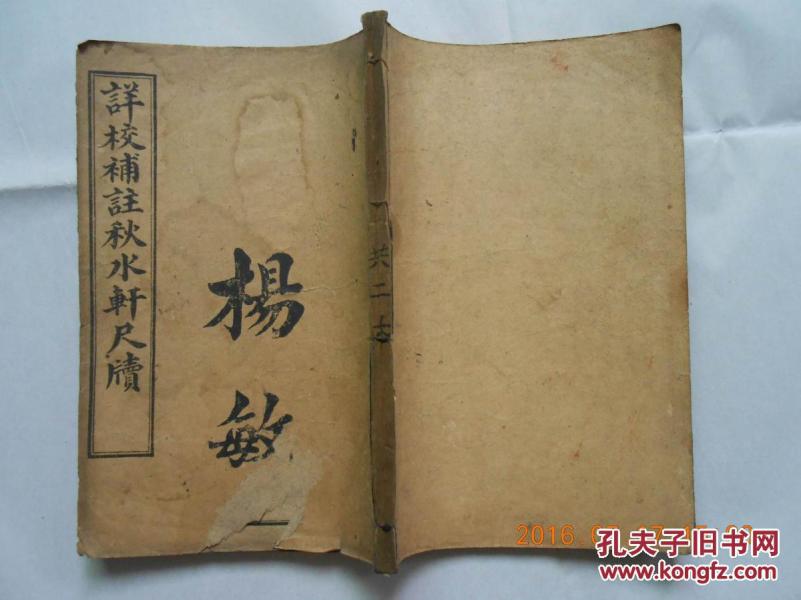 詳校補註秋水軒尺牘
楊敏
共二
孔夫子旧书网
www.kongfz.com